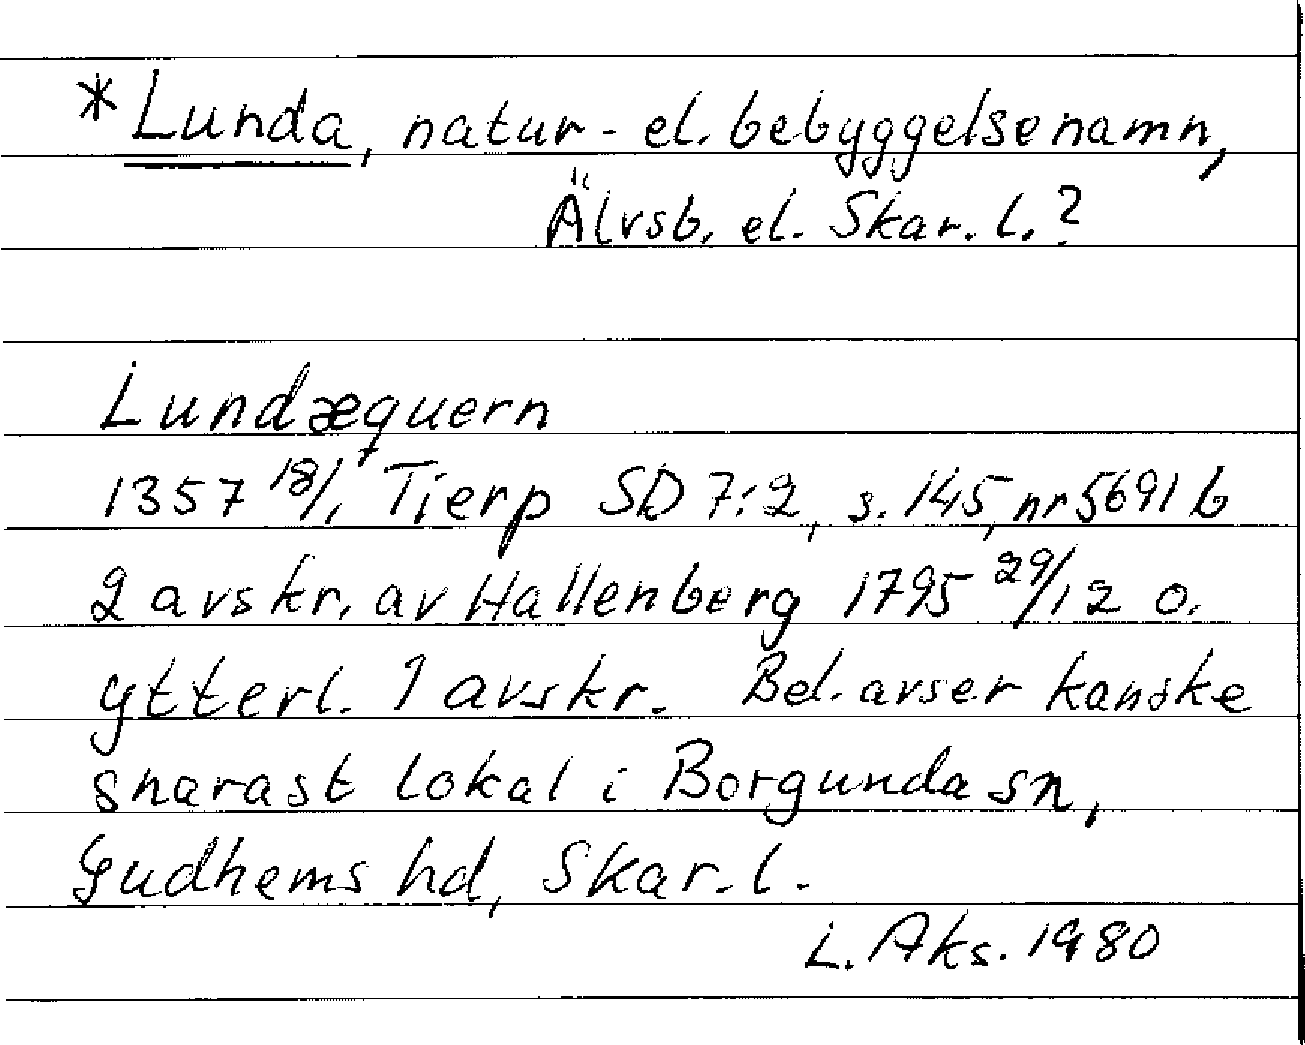 *Lunda, natur- el. bebyggelsenamn,
Älvsb. el. Skar. l.?
Lundæquern
1357 18/1 Tierp SD 7:2, s. 145, nr 5691 b
2 avskr. av Hallenberg 1795 29/12 o.
ytterl. 1 avskr. Bel. avser kanske
snarast lokal i Borgunda sn,
Gudhems hd, Skar. l.
L. Aks. 1980